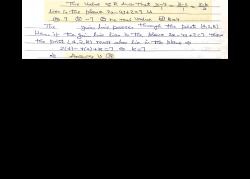 The value of k such that x-4/1 = y-2/1 = z-k/2
lies in the plane 2x-4y+z=7 is
7 -7 no real value 4
The given line passes through the point (4,2,k)
Hence if the given line lies in the plane 2x-4y+z=7 then
the point (4,2,k) must also lie in the plane
2(4)-4(2)+k=7 ⇒ k=7
Answer is (A)